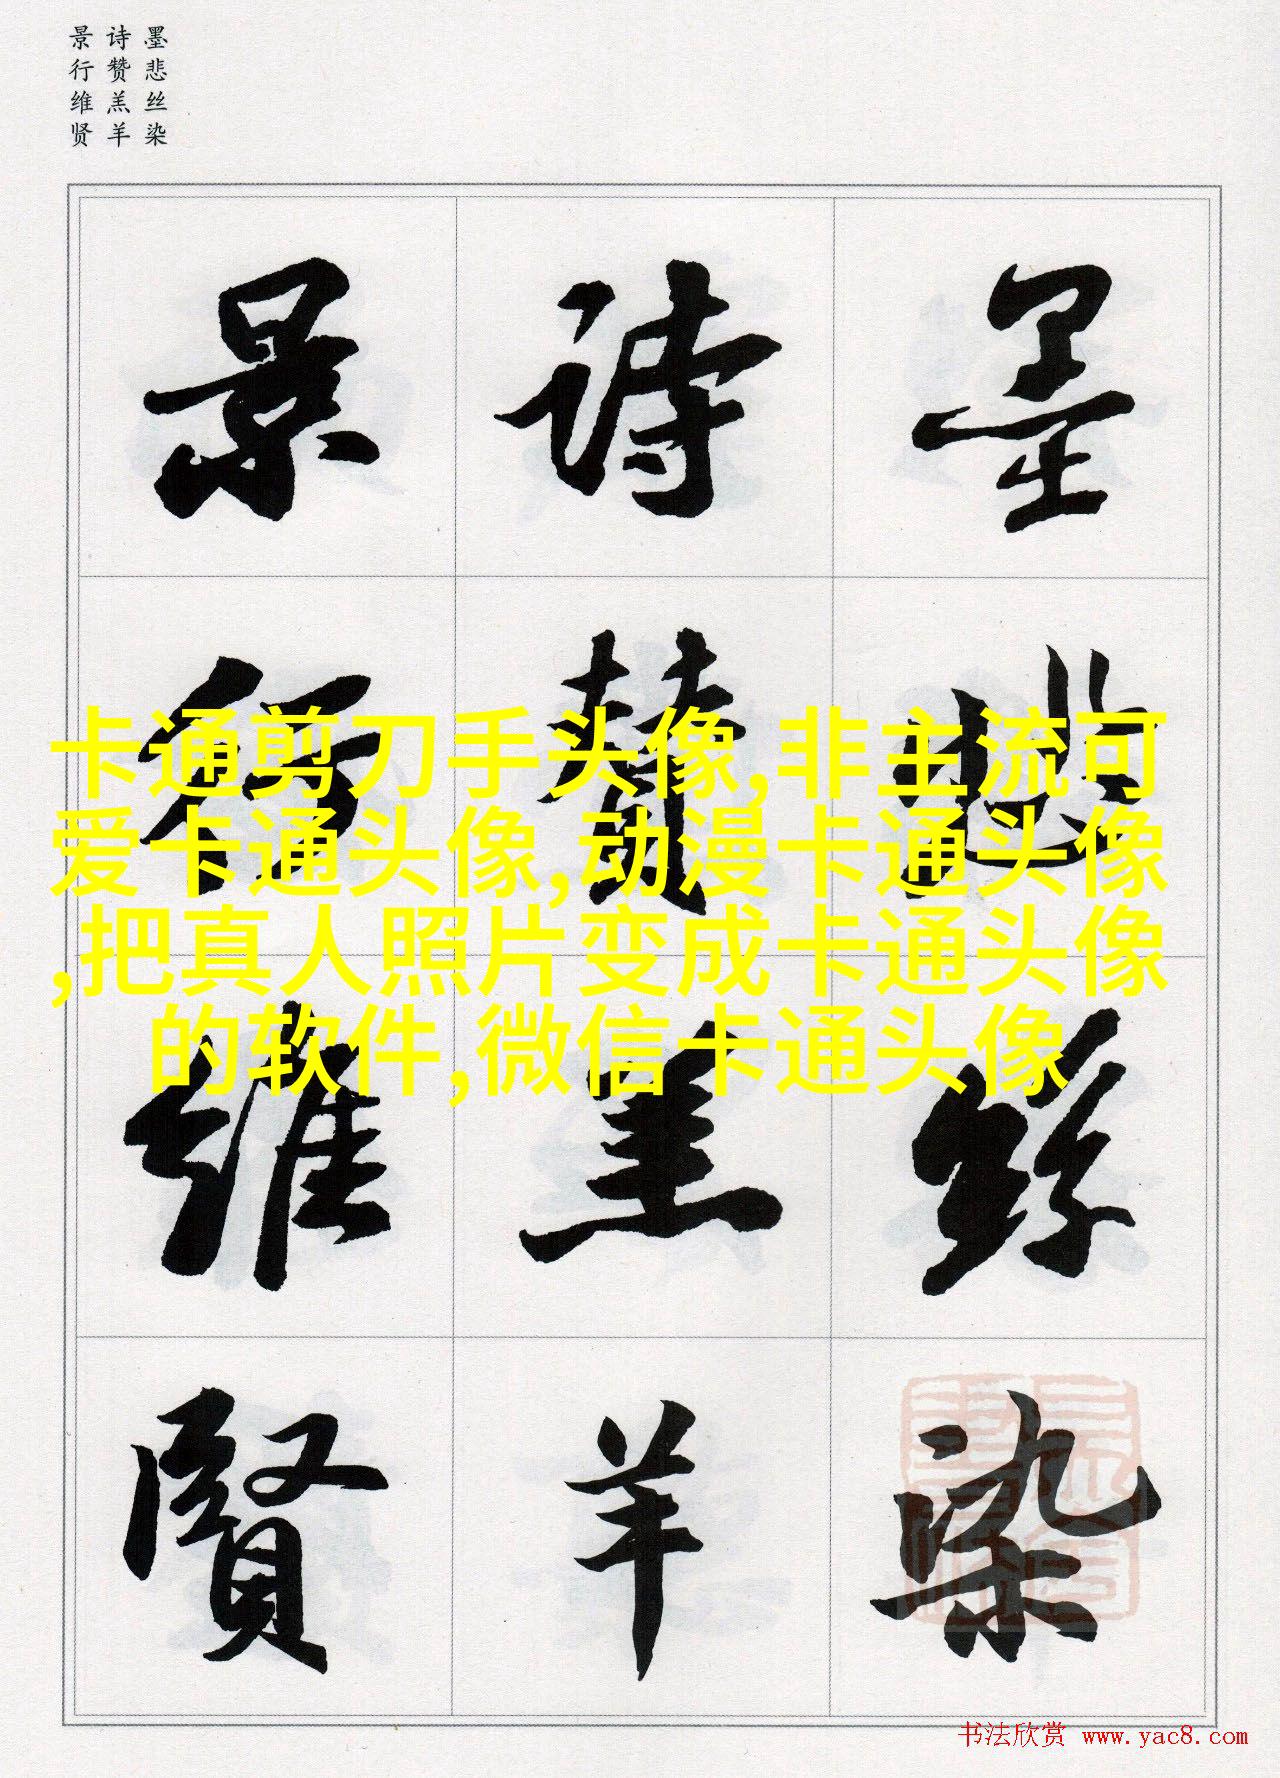 墨悲丝染
诗赞羔羊
景行维贤
墨悲絲染
詩贊羔羊
景行維賢
卡通剪刀手头像,非主流可
爱卡通头像,动漫卡通头像
,把真人照片变成卡通头像
的软件,微信卡通头像
书法欣赏 www.yac8.com